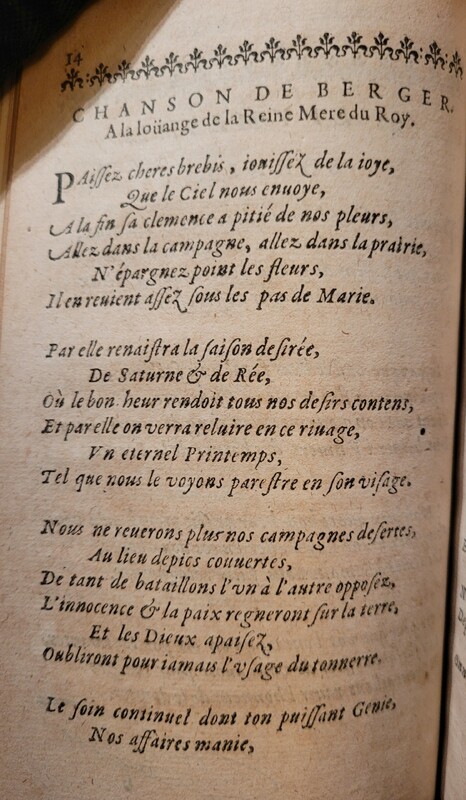 14
CHANSON DE BERGER.
A la loüange de la Reine Mere du Roy.
PAiſſez cheres brebis, ioüiſſez de la ioye,
Que le Ciel nous enuoye,
A la fin ſa clemence a pitié de nos pleurs,
Allez dans la campagne, allez dans la prairie,
N'épargnez point les fleurs,
Il en reuient aſſez ſous les pas de Marie.
Par elle renaiſtra la ſaiſon deſirée,
De Saturne & de Rée,
Où le bon heur rendoit tous nos deſirs contens,
Et par elle on verra reluire en ce riuage,
Vn eternel Printemps,
Tel que nous le voyons pareſtre en ſon viſage.
Nous ne reuerons plus nos campagnes deſertes,
Au lieu d'epics couuertes,
De tant de bataillons l'vn à l'autre oppoſez,
L'innocence & la paix regneront ſur la terre,
Et les Dieux apaiſez,
Oubliront pour iamais l'vſage du tonnerre.
Le ſoin continuel dont ton puiſſant Genie,
Nos affaires manie,